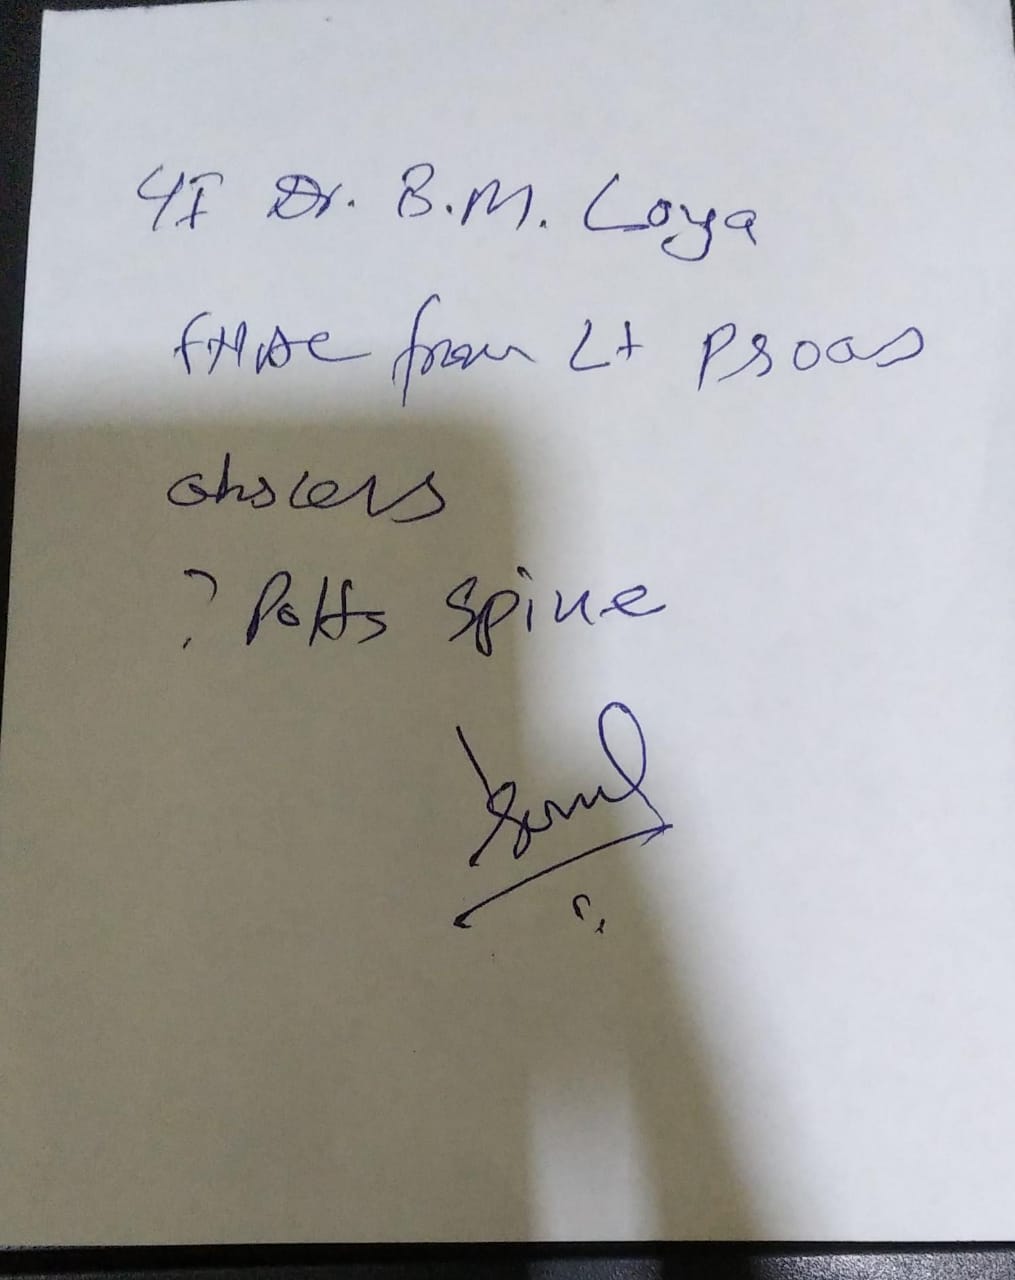 Dr. B.M. Loya
FNAC from Lt Psoas
abscess
? Potts Spine